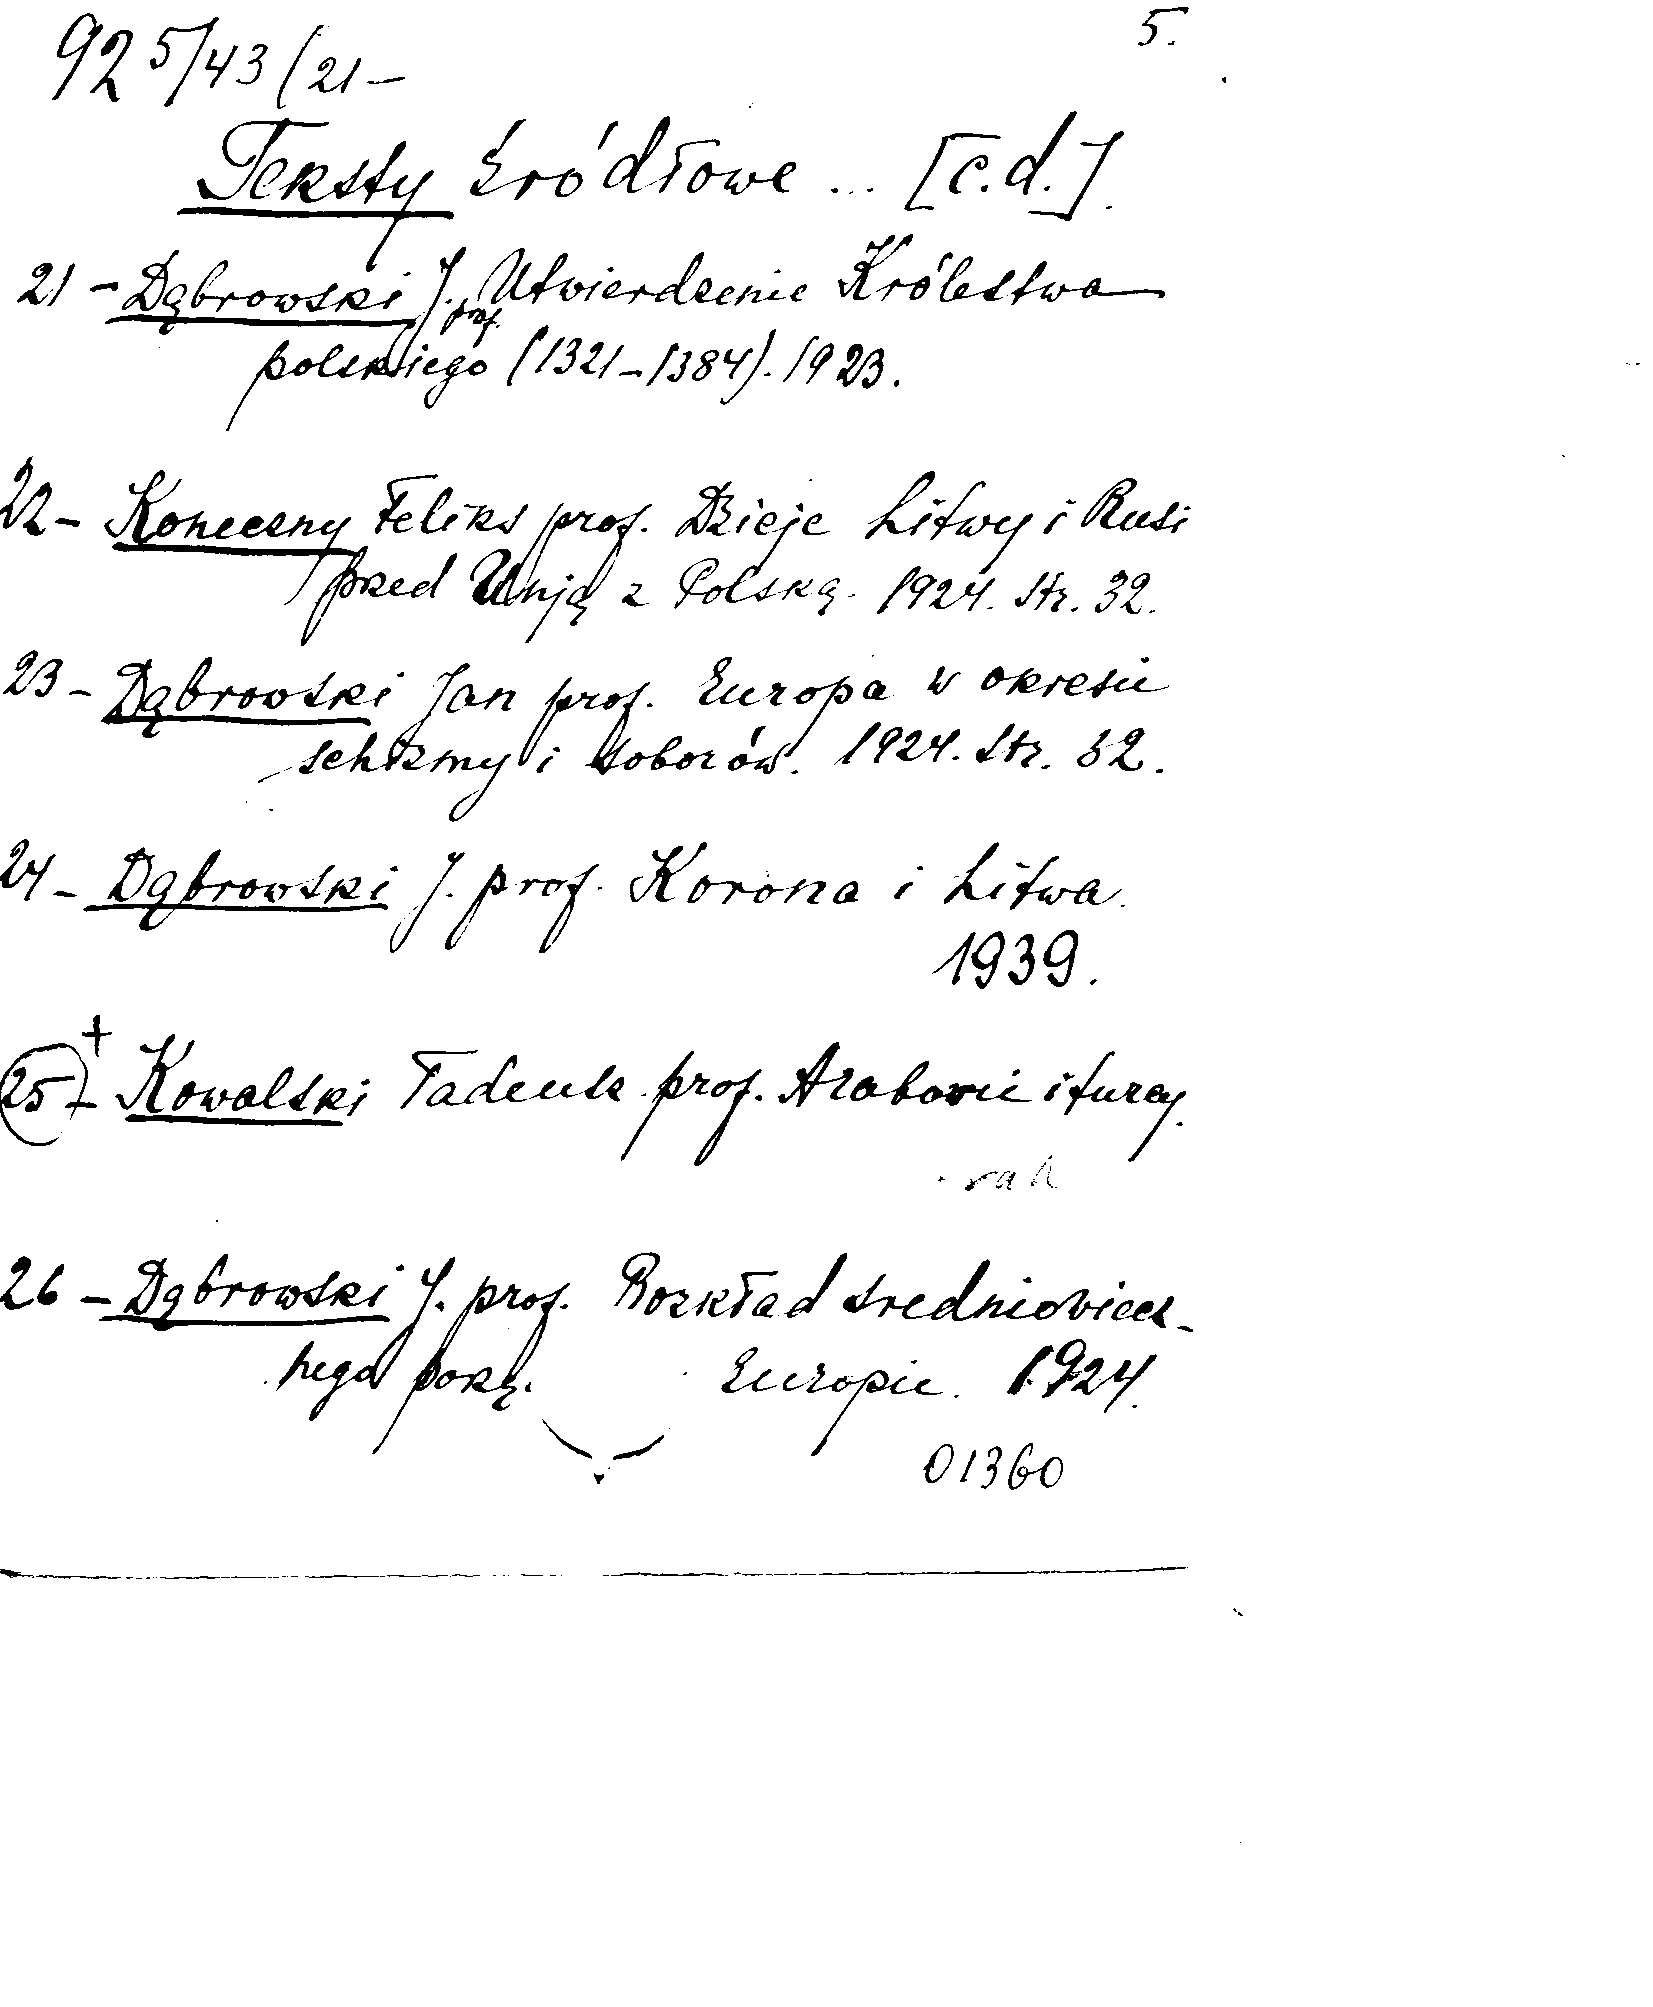 5.
925/43 (21 –
Teksty źródłowe ... [c.d.].
21 – Dąbrowski J. prof. Utwierdzenie Królestwa
polskiego (1321–1384). 1923.
22 – Koneczny Feliks prof. Dzieje Litwy i Rusi
przed Unją z Polską. 1924. Str. 32.
23 – Dąbrowski Jan prof. Europa w okresie
schizmy i soborów. 1924. Str. 32.
24 – Dąbrowski J. prof. Korona i Litwa.
1939.
25 +– Kowalski Tadeusz prof. Arabowie i turcy.
26 – Dąbrowski J. prof. Rozkład średniowiecz-
nego Europie. 1924.
01360